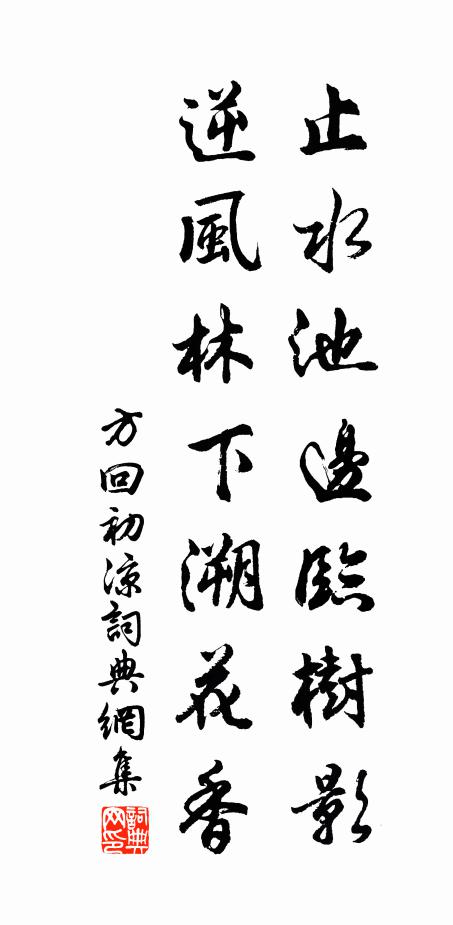 止水池邊臨樹影
逆風林下溯花香
方回初涼詞典網集
詞典网印